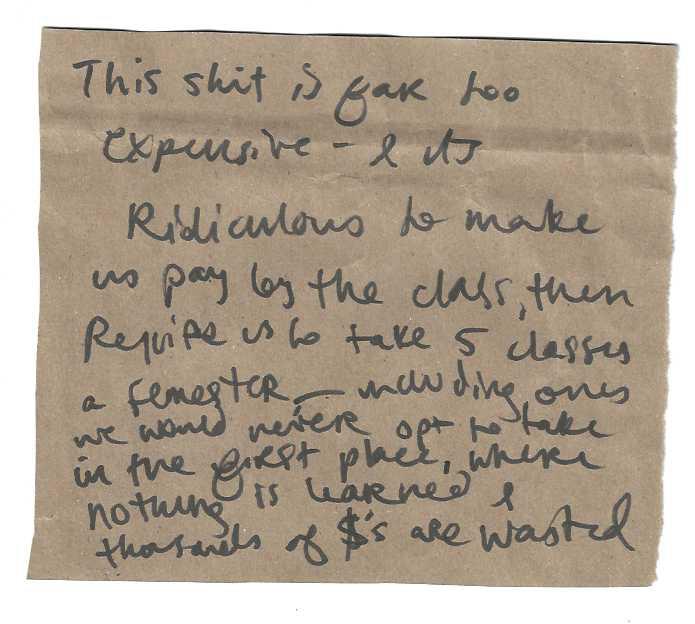 This shit is far too
expensive - & its
Ridiculous to make
us pay by the class, then
Require us to take 5 classes
a semester - including ones
we would never opt to take
in the first place, where
nothing is learned &
thousands of $'s are wasted